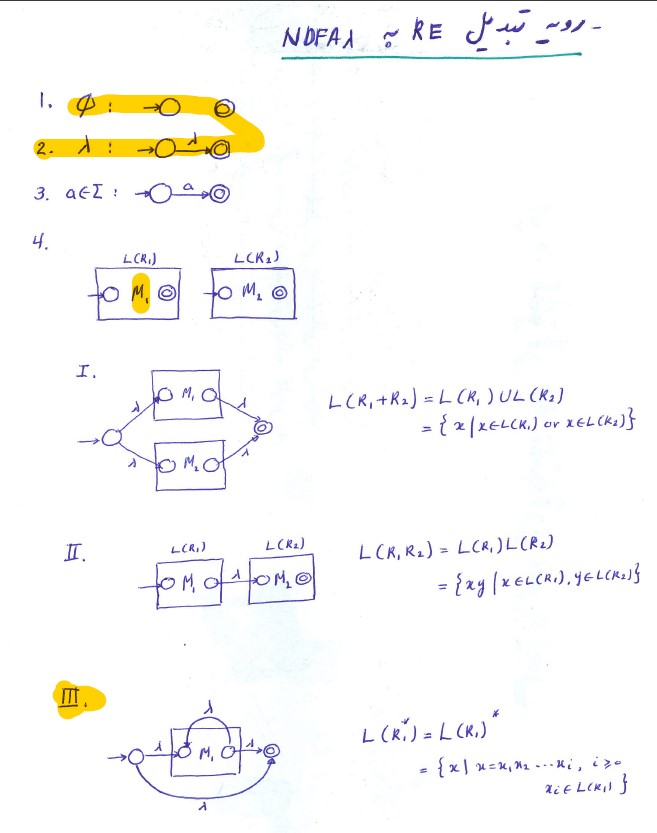 - رویه تبدیل RE به NDFAλ
1. φ : 
2. λ : λ
3. a∈Σ : a
4.
L(R₁) L(R₂)
M₁ M₂
I.
λ M₁ λ
λ M₂ λ
L(R₁+R₂) = L(R₁) ∪ L(R₂)
= {x | x∈L(R₁) or x∈L(R₂)}
II.
L(R₁) L(R₂)
M₁ λ M₂
L(R₁R₂) = L(R₁)L(R₂)
= {xy | x∈L(R₁), y∈L(R₂)}
III.
λ
λ M₁ λ
λ
L(R₁*) = L(R₁)*
= {x | x=x₁x₂ ... xᵢ, i≥0
xᵢ∈L(R₁)}